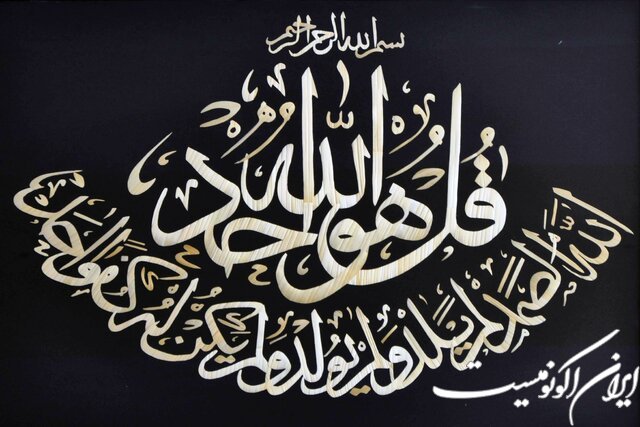 بسم الله الرحمن الرحیم
قُلْ هُوَ اللّٰهُ اَحَدٌ
اَللّٰهُ الصَّمَدُ لَمْ یَلِدْ وَ لَمْ یُولَدْ وَ لَمْ یَکُنْ لَهُ کُفُوًا اَحَدٌ
ایران اکونومیست